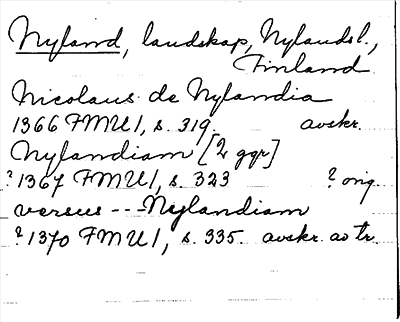 Nyland, landskap, Nylandsl.,
Finland
Nicolaus de Nylandia
1366 FMU 1, s. 319. avskr.
Nylandiam [2 ggr]
?1367 FMU 1, s. 323 ? orig
versus --- Nylandiam
?1370 FMU 1, s. 335. avskr. av tr.